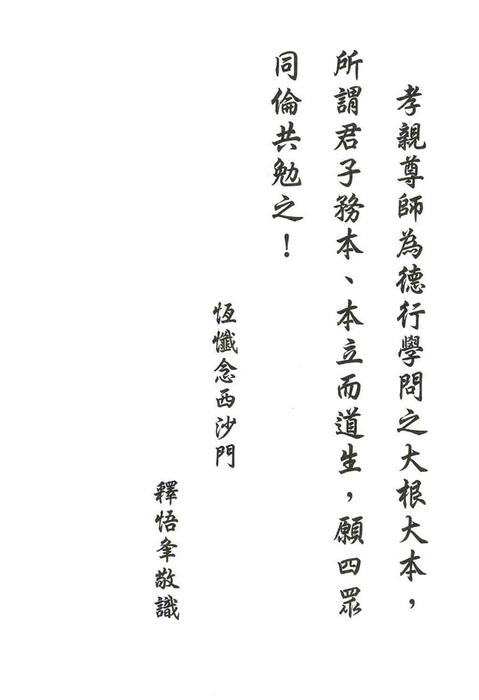 孝親尊師為德行學問之大根大本，
所謂君子務本、本立而道生，願四眾
同倫共勉之！
恆懺念西沙門
釋悟峯敬識